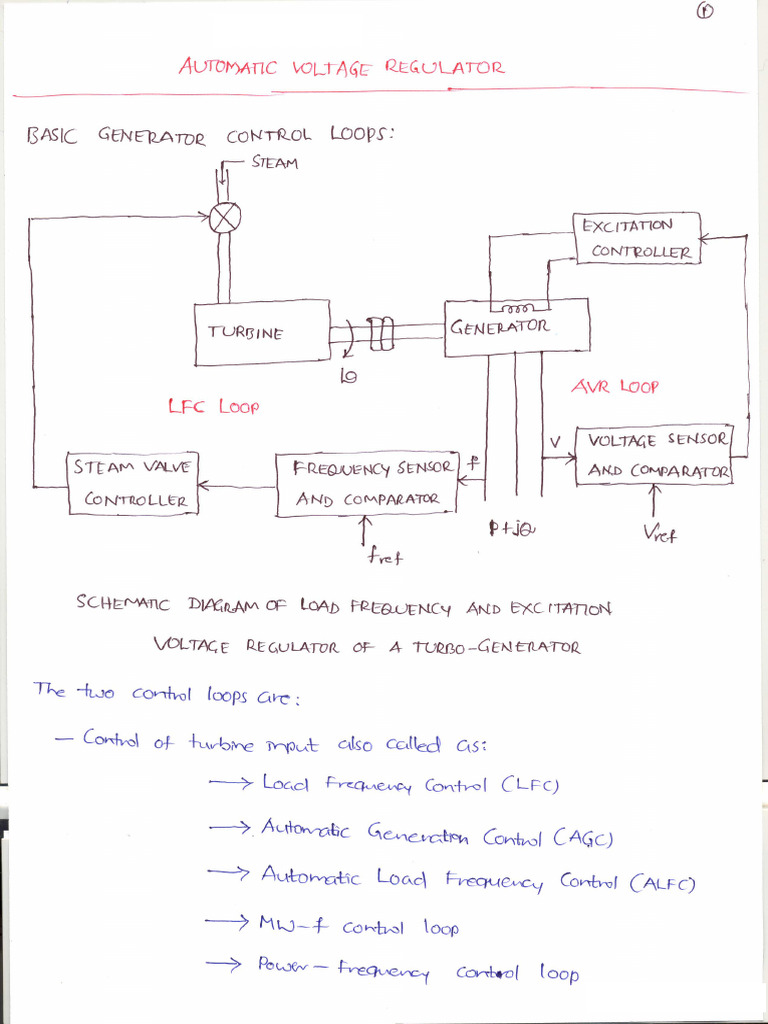 1
AUTOMATIC VOLTAGE REGULATOR
BASIC GENERATOR CONTROL LOOPS:
STEAM
EXCITATION
CONTROLLER
TURBINE
GENERATOR
AVR LOOP
LFC LOOP
V
VOLTAGE SENSOR
AND COMPARATOR
STEAM VALVE
CONTROLLER
FREQUENCY SENSOR
AND COMPARATOR
f
P+jQ
Vref
fref
SCHEMATIC DIAGRAM OF LOAD FREQUENCY AND EXCITATION
VOLTAGE REGULATOR OF A TURBO-GENERATOR
The two control loops are:
— Control of turbine input also called as:
→ Load Frequency Control (LFC)
→ Automatic Generation Control (AGC)
→ Automatic Load Frequency Control (ALFC)
→ MW-f control loop
→ Power-frequency control loop